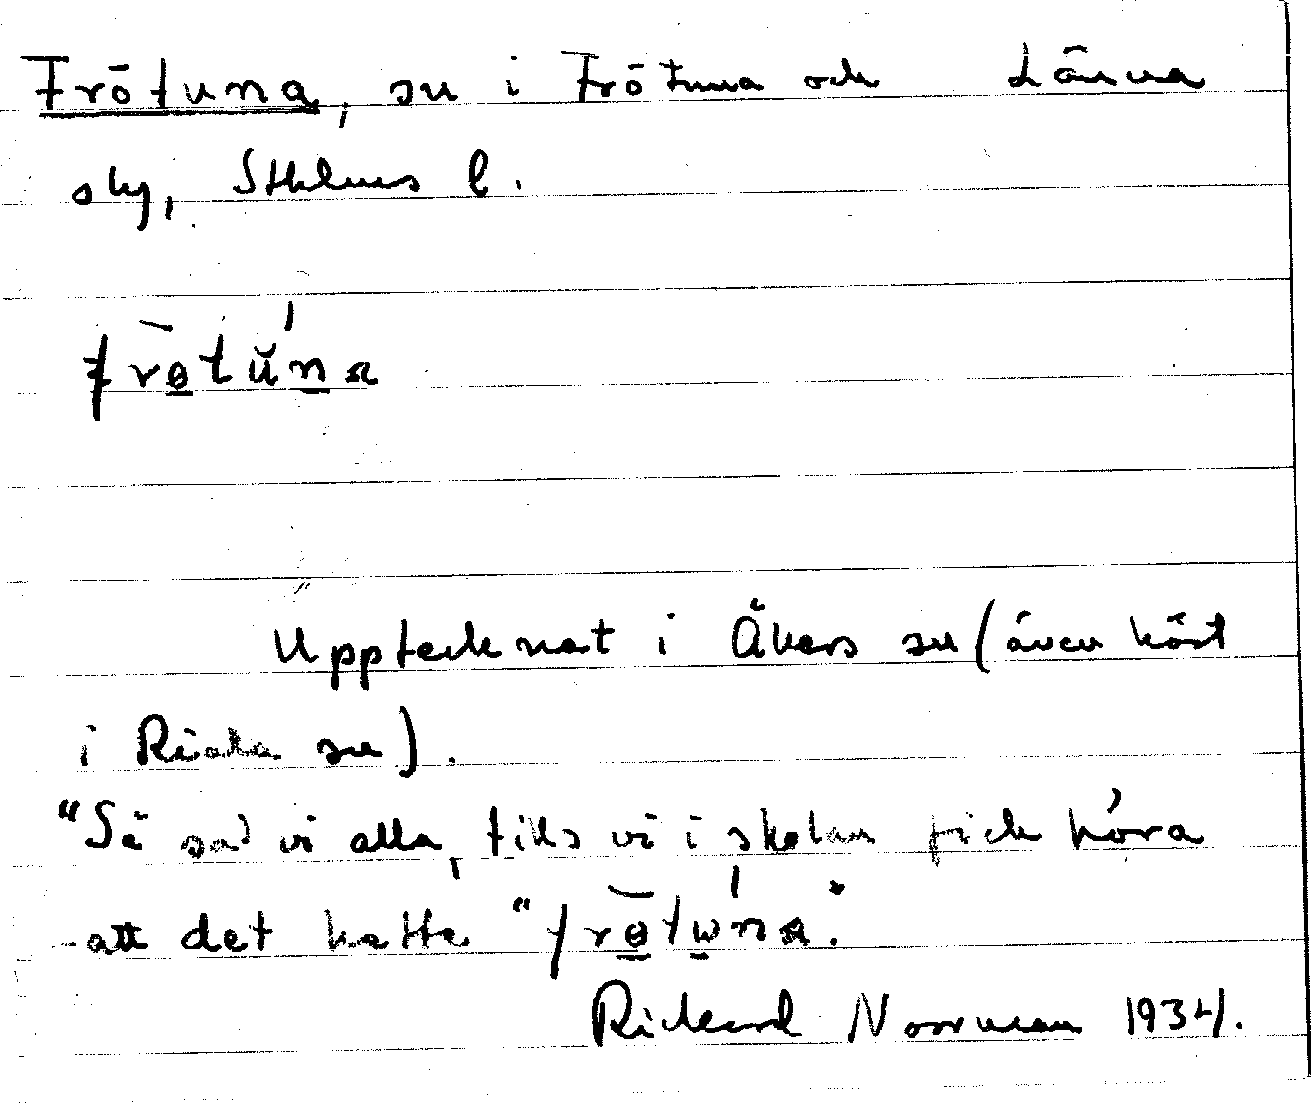 Frötuna, sn i Frötuna och Länna
sky, Sthlms l.
frɵtŭna
Upptecknat i Åkers sn (även hört
i Riala sn).
"Så sad vi alla, tills vi i skolan fick höra
att det hette "frɵtωna".
Rickard Norrman 1934.